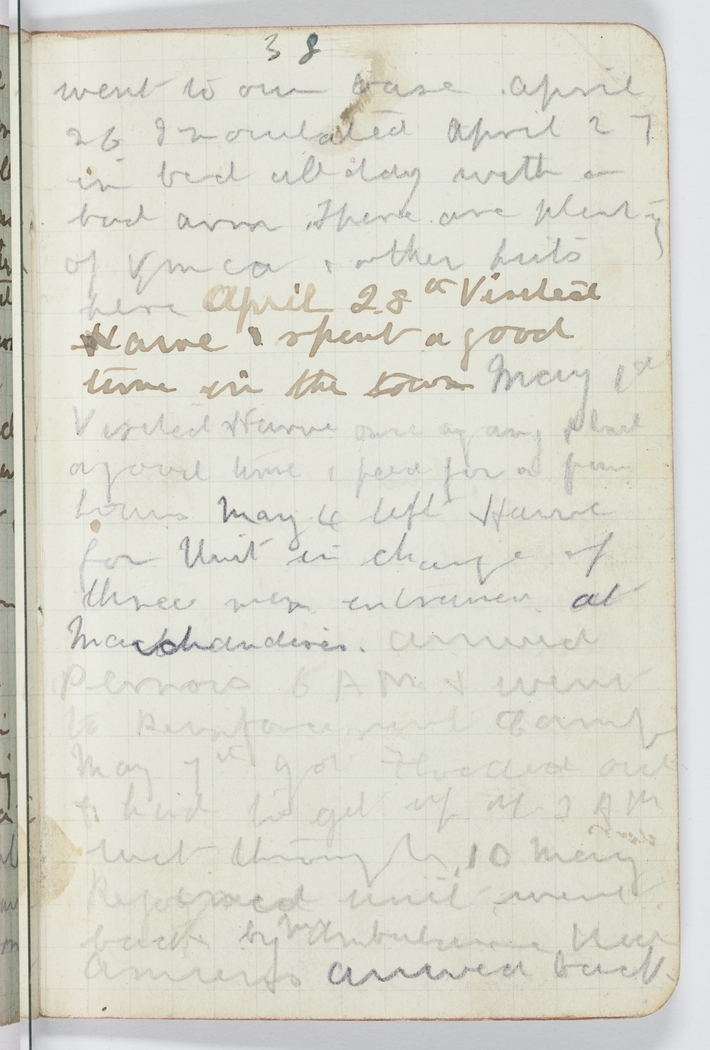 38
went to our base. april
26 Inoculated April 27
in bed all day with a
bad arm. There are plenty
of Ymca & other huts
here April 28th Visited
Havre & spent a good
time in the town May 1st
Visited Havre once again & had
a good time & for a few
hours May 4 left Havre
for Unit in charge of
three men at
arrived
Pernois 6 AM & went
to Reinforcement Camp
May 7th got Flooded out
& had to get up at 2 AM
wet through, 10 May
Rejoined unit went
back by M Ambulance Near
Amiens arrived back